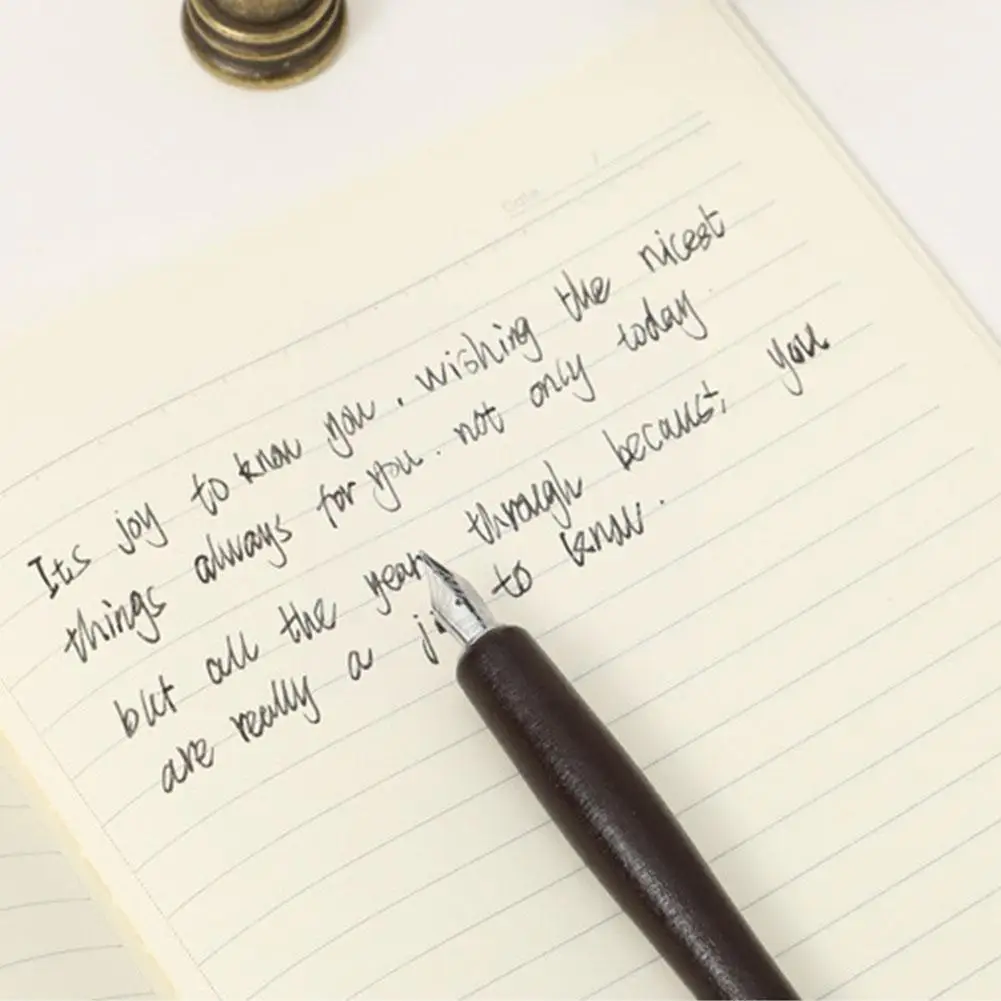 Date /
Its joy to know you. wishing the nicest
things always for you. not only today
but all the year through because, you
are really a to know.